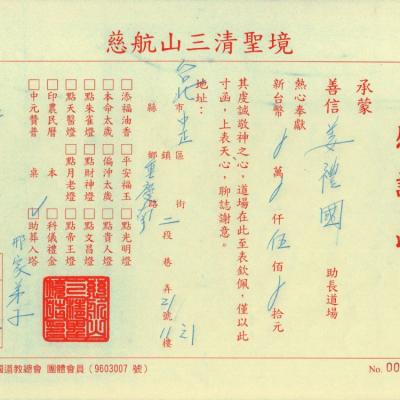 慈航山三清聖境
承蒙
善信 姜禮國 助長道場
熱心奉獻
新台幣 萬 仟 伍 佰 拾元
其虔誠敬神之心，道場在此至表欽佩，僅以此
寸函，上表天心，聊誌謝意。
地址：
台北市中正區
縣 鄉鎮 重慶南路街 二段 巷 弄 21號 11樓之1
□添福油香 □平安福王 □點光明燈
□本命太歲 □偏沖太歲 □點貴人燈
□點朱雀燈 □點財神燈 □點文昌燈
□點天醫燈 □點月老燈 □點帝王燈
□印農民曆 本 □科儀禮金
□中元贊普 桌 □助葬入塔
邢家弟子
國道教總會 團體會員 (9603007 號)
No. 00